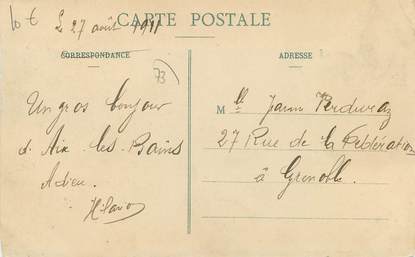 10 €
Le 27 août 1911
CARTE POSTALE
CORRESPONDANCE
ADRESSE
73
Un gros bonjour
d'Aix les Bains
Adieu.
Mlle
27 Rue de la Fédération
à Grenoble